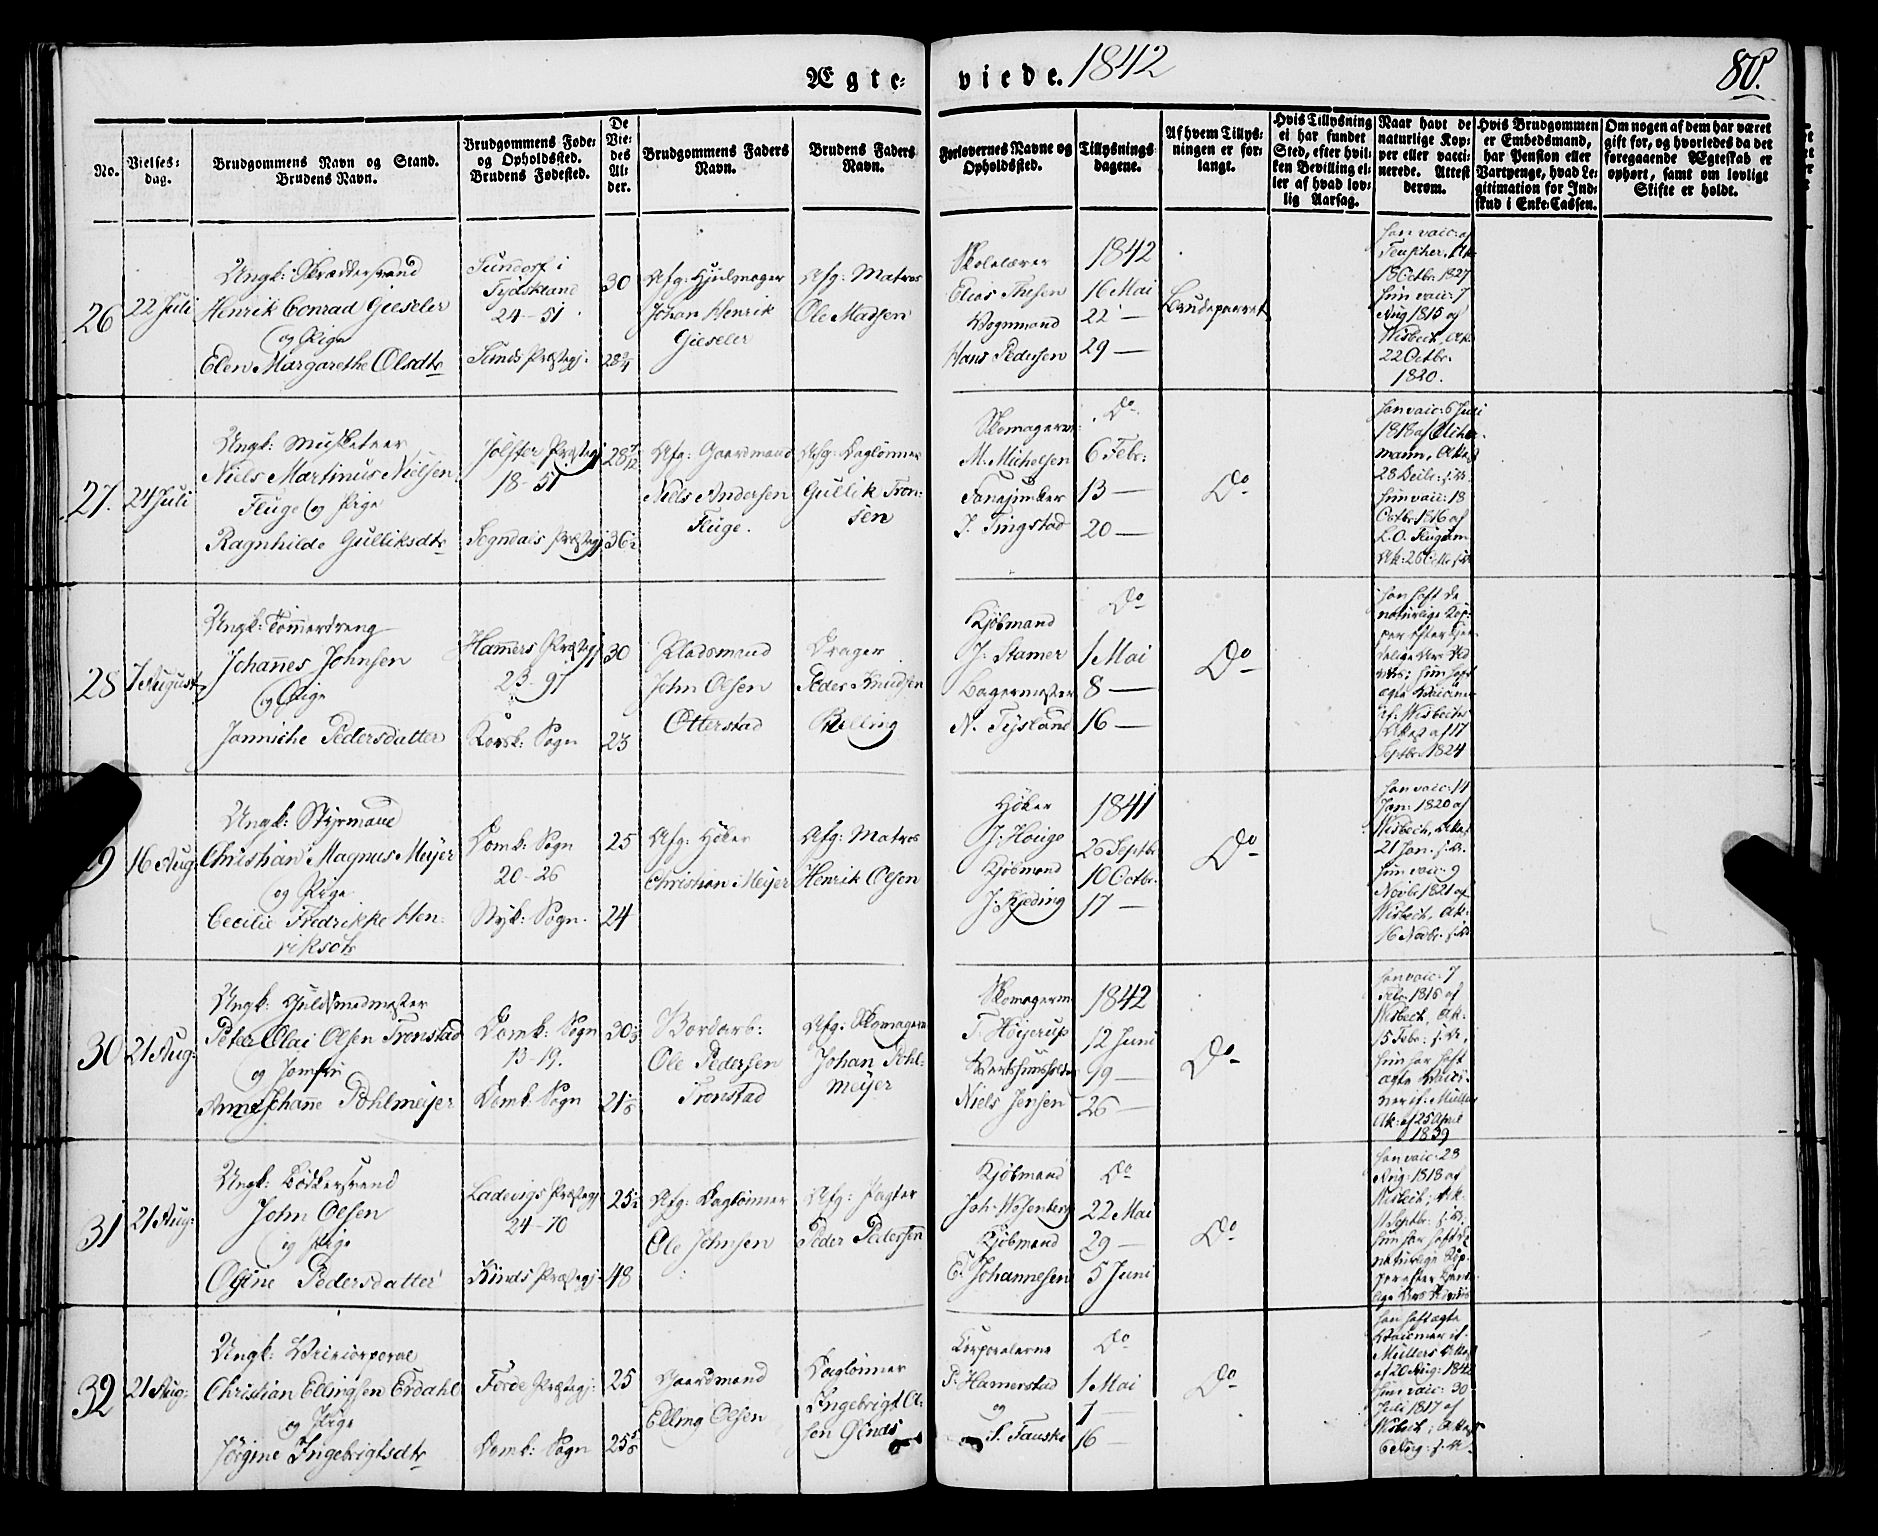 Ægte-
viede. 1842
80.
No.
Vielses-
dag.
Brudgommens Navn og Stand.
Brudens Navn.
Brudgommens Føde-
og Opholdssted.
Brudens Fødested.
De
Vie-
des
Al-
der.
Brudgommens Faders
Navn.
Brudens Faders
Navn.
Forlovernes Navne og
Opholdssted.
Tillysnings-
dagene.
Af hvem Tillys-
ningen er for-
langt.
Hvis Tillysning
ei har fundet
Sted, efter hvil-
ken Bevilling el-
ler af hvad lov-
lig Aarsag.
Naar havt de
naturlige Kop-
per eller vacci-
nerede. Attest
derom.
Hvis Brudgommen
er Embedsmand,
har Pension eller
Vartpenge, hvad Le-
gitimation for Ind-
skud i Enke-Cassen.
Om nogen af dem har været
gift før, og hvorledes da det
foregaaende Ægteskab er
ophørt, samt om lovligt
Skifte er holdt.
26
22 Juli
Ungk: Skrædersvend
Henrik Conrad Gieseler
og Pige
Elen Margarethe Olsdtr
i
Tydskland
24-51
Sunds Præstegj.
30
28
Afg: Hjulmager
Johan Henrik
Gieseler
Afg: Matros
Ole Madsen
Skolelærer
Elias Thesen
Vognmand
Hans Pedersen
1842
16 Mai
22 —
29 —
Brudeparret
18 Octbr. 1827
hun vacc: 7
Aug 1815 af
Wisbech, Att:
22 Octbr.
1820.
27.
24 Juli
Ungk: Musketeer
Niels Martinus Nielsen
Fluge og Pige
Ragnhilde Gulliksdtr
Jølster Præstegj
18-51
Sogndals Præstegj.
28
36
Afg: Gaardmand
Niels Andersen
Fluge.
Afg: Daglønner
Gullik Tron-
sen
Skomagerm.
M. Michelsen
Fanejunker
J. Tingstad
Do
6 Febr:
13 —
20 —
Do
han vacc: 6 Juli
hun vacc: 18
Octbr 1816 af
28
7 August
Ungk: Tømmerdreng
Johannes Johnsen
og Pige
Janniche Pedersdatter
Hammers Præstegj
23-97
Korsk: Sogn
30
23
Pladsmand
John Olsen
Otterstad
Drager
Peder Knudsen
Kjøbmand
J. Stamer
Bagermester
N. Tysland
Do
1 Mai
8 —
16 —
Do
han haft de
naturlige Kop-
per efter
Septbr. 1824
9
16 Aug:
Ungk: Styrmand
Christian Magnus Meyer
og Pige
Cecilie Fredrikke Hen-
riksdtr
Domk: Sogn
20-26
Nyk: Sogn.
25
24
Afg: Høker
Christian Meyer
Afg: Matros
Henrik Olsen
Høker
J. Houge
Kjøbmand
J. Kjeding
1841
26 Septbr
10 Octbr.
17 —
Do
han vacc: 11
Jan: 1820 af
Wisbech, Att: af
21 Jan.
hun vacc: 9
Novbr 1821 af
Wisbech, Att:
16 Novbr.
30
21 Aug:
Ungk: Guldsmedmester
Peter Olai Olsen Tronstad
og Jomfru
Anne Johanne Pohlmeyer
Domk: Sogn
13-19.
Domk: Sogn
30
21
Bordarb:
Ole Pedersen
Tronstad
Afg: Skomagerm
Johan Pohl-
meyer
Skomagerm
F. Høyerup
Niels Jensen
1842
12 Juni
19 —
26 —
Do
han vacc: 7
Febr 1816 af
Wisbech, Att:
15 Febr:
hun har haft
ægte Vacci-
Att: af 25 April
1839
31
21 Aug:
Ungk: Bødkersvend
John Olsen
og Pige
Olsine Pedersdatter
Ladevigs Præstegj
24-70
Kinds Præstegj.
25
48
Afg: Daglønner
Ole Johnsen
Afg: Pagter
Peder Pedersen
Kjøbmand
Joh: Wesenberg
Kjøbmand
E. Johannesen
Do
22 Mai
29 —
5 Juni
Do
han vacc: 28
Aug: 1818 af
Wisbech, Att:
11 Septbr:
hun har haft de
naturlige Kop-
32
21 Aug:
Ungk: Vicecorporal
Christian Ellingsen Erdahl
og Pige
Jørgine Ingebrigtsdtr
Førde Præstegj:
Domk: Sogn
25
25
Gaardmand
Elling Olsen
Daglønner
Ingebrigt Ol-
sen
Corporalerne
P. Hamerstad
og
S. Fauske
Do
1 Mai
16 —
Do
han haft ægte
Müllers Attest
af 20 Aug: 1842
hun vacc: 30
Juli 1817 af
Wisbech, Attest